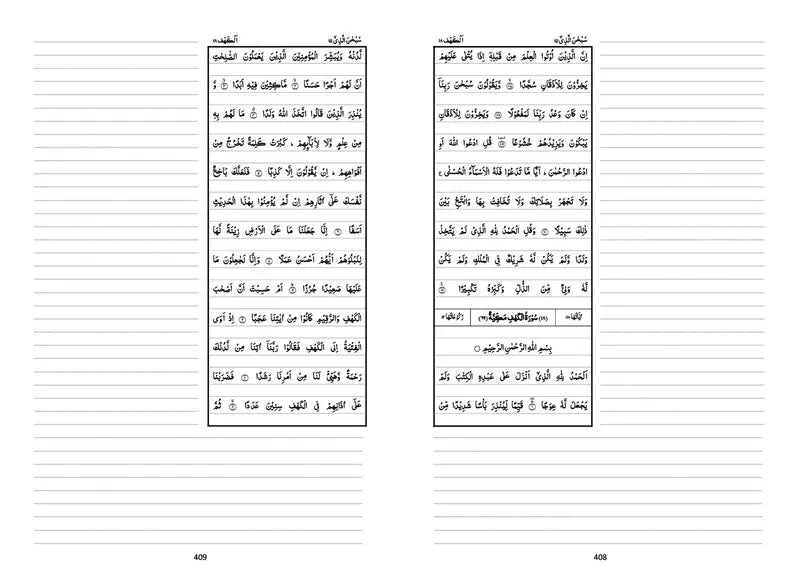 سُبْحٰنَ الَّذِیْۤ ۱۵
اَلْكَهْف ۱۸
قَبْلِهٖۤ اِذَا یُتْلٰى عَلَیْهِمْ
یَخِرُّوْنَ لِلْاَذْقَانِ سُجَّدًا ۙ وَّیَقُوْلُوْنَ سُبْحٰنَ رَبِّنَاۤ
اِنْ كَانَ وَعْدُ رَبِّنَا لَمَفْعُوْلًا وَیَخِرُّوْنَ لِلْاَذْقَانِ
یَبْكُوْنَ وَیَزِیْدُهُمْ خُشُوْعًا قُلِ ادْعُوا اللّٰهَ اَوِ
ادْعُوا الرَّحْمٰنَ ؕ اَیًّا مَّا تَدْعُوْا فَلَهُ الْاَسْمَآءُ الْحُسْنٰى ۚ
وَلَا تَجْهَرْ بِصَلَاتِكَ وَلَا تُخَافِتْ بِهَا وَابْتَغِ بَیْنَ
ذٰلِكَ سَبِیْلًا وَقُلِ الْحَمْدُ لِلّٰهِ الَّذِیْ لَمْ یَتَّخِذْ
وَلَدًا وَّلَمْ یَكُنْ لَّهٗ شَرِیْكٌ فِی الْمُلْكِ وَلَمْ یَكُنْ
لَّهٗ وَلِیٌّ مِّنَ الذُّلِّ وَكَبِّرْهُ تَكْبِیْرًا
اٰیَاتُهَا ۱۱۰ (۱۸) سُوْرَةُ الْكَهْفِ مَكِّیَّةٌ (۶۹) رُكُوْعَاتُهَا ۱۲
بِسْمِ اللّٰهِ الرَّحْمٰنِ الرَّحِیْمِ
اَلْحَمْدُ لِلّٰهِ الَّذِیْۤ اَنْزَلَ عَلٰى عَبْدِهِ الْكِتٰبَ وَلَمْ
یَجْعَلْ لَّهٗ عِوَجًا قَیِّمًا لِّیُنْذِرَ بَاْسًا شَدِیْدًا مِّنْ
408
سُبْحٰنَ الَّذِیْۤ ۱۵
اَلْكَهْف ۱۸
لَّدُنْهُ وَیُبَشِّرَ الْمُؤْمِنِیْنَ الَّذِیْنَ یَعْمَلُوْنَ الصّٰلِحٰتِ
اَنَّ لَهُمْ اَجْرًا حَسَنًا مَّاكِثِیْنَ فِیْهِ اَبَدًا وَّ
یُنْذِرَ الَّذِیْنَ قَالُوا اتَّخَذَ اللّٰهُ وَلَدًا مَا لَهُمْ بِهٖ
مِنْ عِلْمٍ وَّلَا لِاٰبَآىِٕهِمْ ؕ كَبُرَتْ كَلِمَةً تَخْرُجُ مِنْ
اَفْوَاهِهِمْ ؕ اِنْ یَّقُوْلُوْنَ اِلَّا كَذِبًا فَلَعَلَّكَ بَاخِعٌ
نَّفْسَكَ عَلٰۤى اٰثَارِهِمْ اِنْ لَّمْ یُؤْمِنُوْا بِهٰذَا الْحَدِیْثِ
اَسَفًا اِنَّا جَعَلْنَا مَا عَلَى الْاَرْضِ زِیْنَةً لَّهَا
لِنَبْلُوَهُمْ اَیُّهُمْ اَحْسَنُ عَمَلًا وَاِنَّا لَجٰعِلُوْنَ مَا
عَلَیْهَا صَعِیْدًا جُرُزًا اَمْ حَسِبْتَ اَنَّ اَصْحٰبَ
الْكَهْفِ وَالرَّقِیْمِ كَانُوْا مِنْ اٰیٰتِنَا عَجَبًا اِذْ اَوَى
الْفِتْیَةُ اِلَى الْكَهْفِ فَقَالُوْا رَبَّنَاۤ اٰتِنَا مِنْ لَّدُنْكَ
رَحْمَةً وَّهَیِّئْ لَنَا مِنْ اَمْرِنَا رَشَدًا فَضَرَبْنَا
عَلٰۤى اٰذَانِهِمْ فِی الْكَهْفِ سِنِیْنَ عَدَدًا ثُمَّ
409